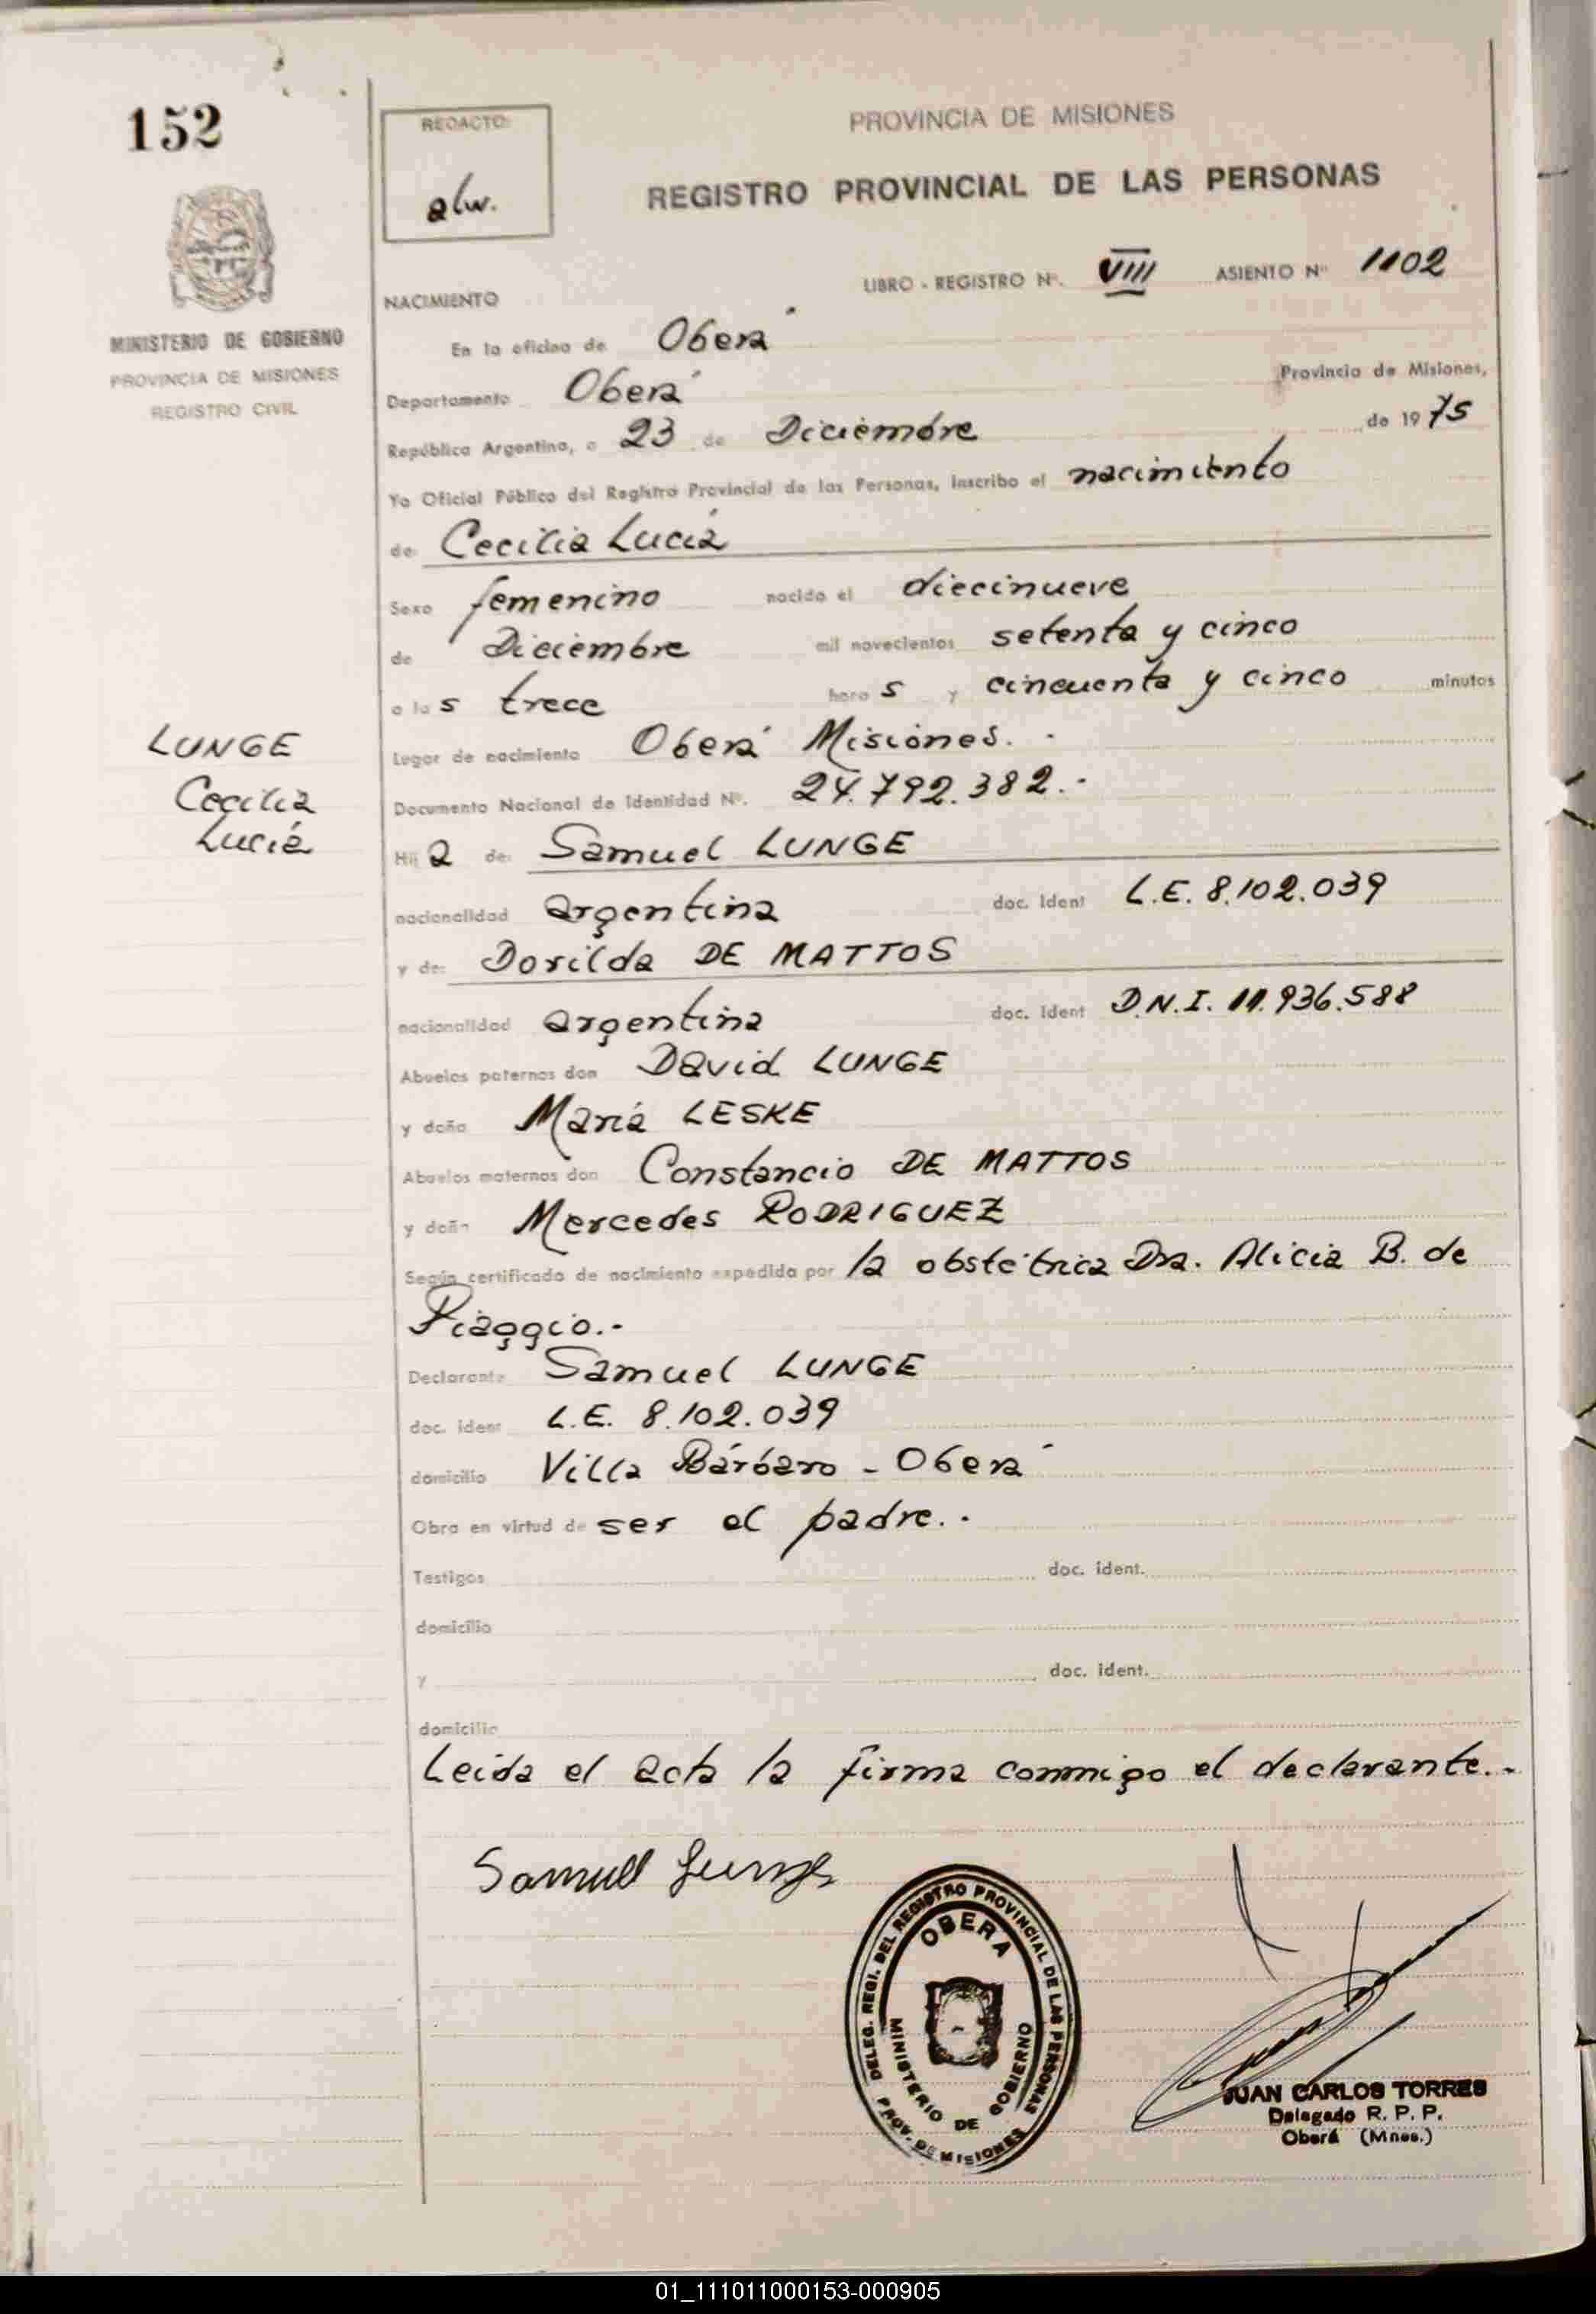 152
REDACTO:
alw.
PROVINCIA DE MISIONES
REGISTRO PROVINCIAL DE LAS PERSONAS
LIBRO - REGISTRO Nº. VIII ASIENTO Nº 1102
NACIMIENTO
MINISTERIO DE GOBIERNO
PROVINCIA DE MISIONES
REGISTRO CIVIL
En la oficina de Oberá
Departamento Oberá Provincia de Misiones,
República Argentina, a 23 de Diciembre de 1975
Yo Oficial Público del Registro Provincial de las Personas, inscribo el nacimiento
de Cecilia Lucía
Sexo femenino nacido el diecinueve
de Diciembre mil novecientos setenta y cinco
a las trece horas y cincuenta y cinco minutos
Lugar de nacimiento Oberá Misiones.-
Documento Nacional de Identidad Nº. 24.792.382.-
LUNGE
Cecilia
Lucía
Hija de: Samuel LUNGE
nacionalidad argentina doc. Ident L.E. 8.102.039
y de: Dorilda DE MATTOS
nacionalidad argentina doc. Ident D.N.I. 11.936.588
Abuelos paternos don David LUNGE
y doña María LESKE
Abuelos maternos don Constancio DE MATTOS
y doña Mercedes RODRIGUEZ
Según certificado de nacimiento expedido por la obstétrica Dra. Alicia B. de
Piaggio.-
Declarante Samuel LUNGE
doc. ident L.E. 8.102.039
domicilio Villa Bárbaro - Oberá
Obra en virtud de ser el padre.-
Testigos doc. ident.
domicilio
y doc. ident.
domicilio
Leída el acta la firma conmigo el declarante.-
Samuel Lunge
DELEG. REGI. DEL REGISTRO PROVINCIAL DE LAS PERSONAS
OBERA
MINISTERIO DE GOBIERNO
PROV. DE MISIONES
JUAN CARLOS TORRES
Delegado R. P. P.
Oberá (Mnes.)
01_111011000153-000905